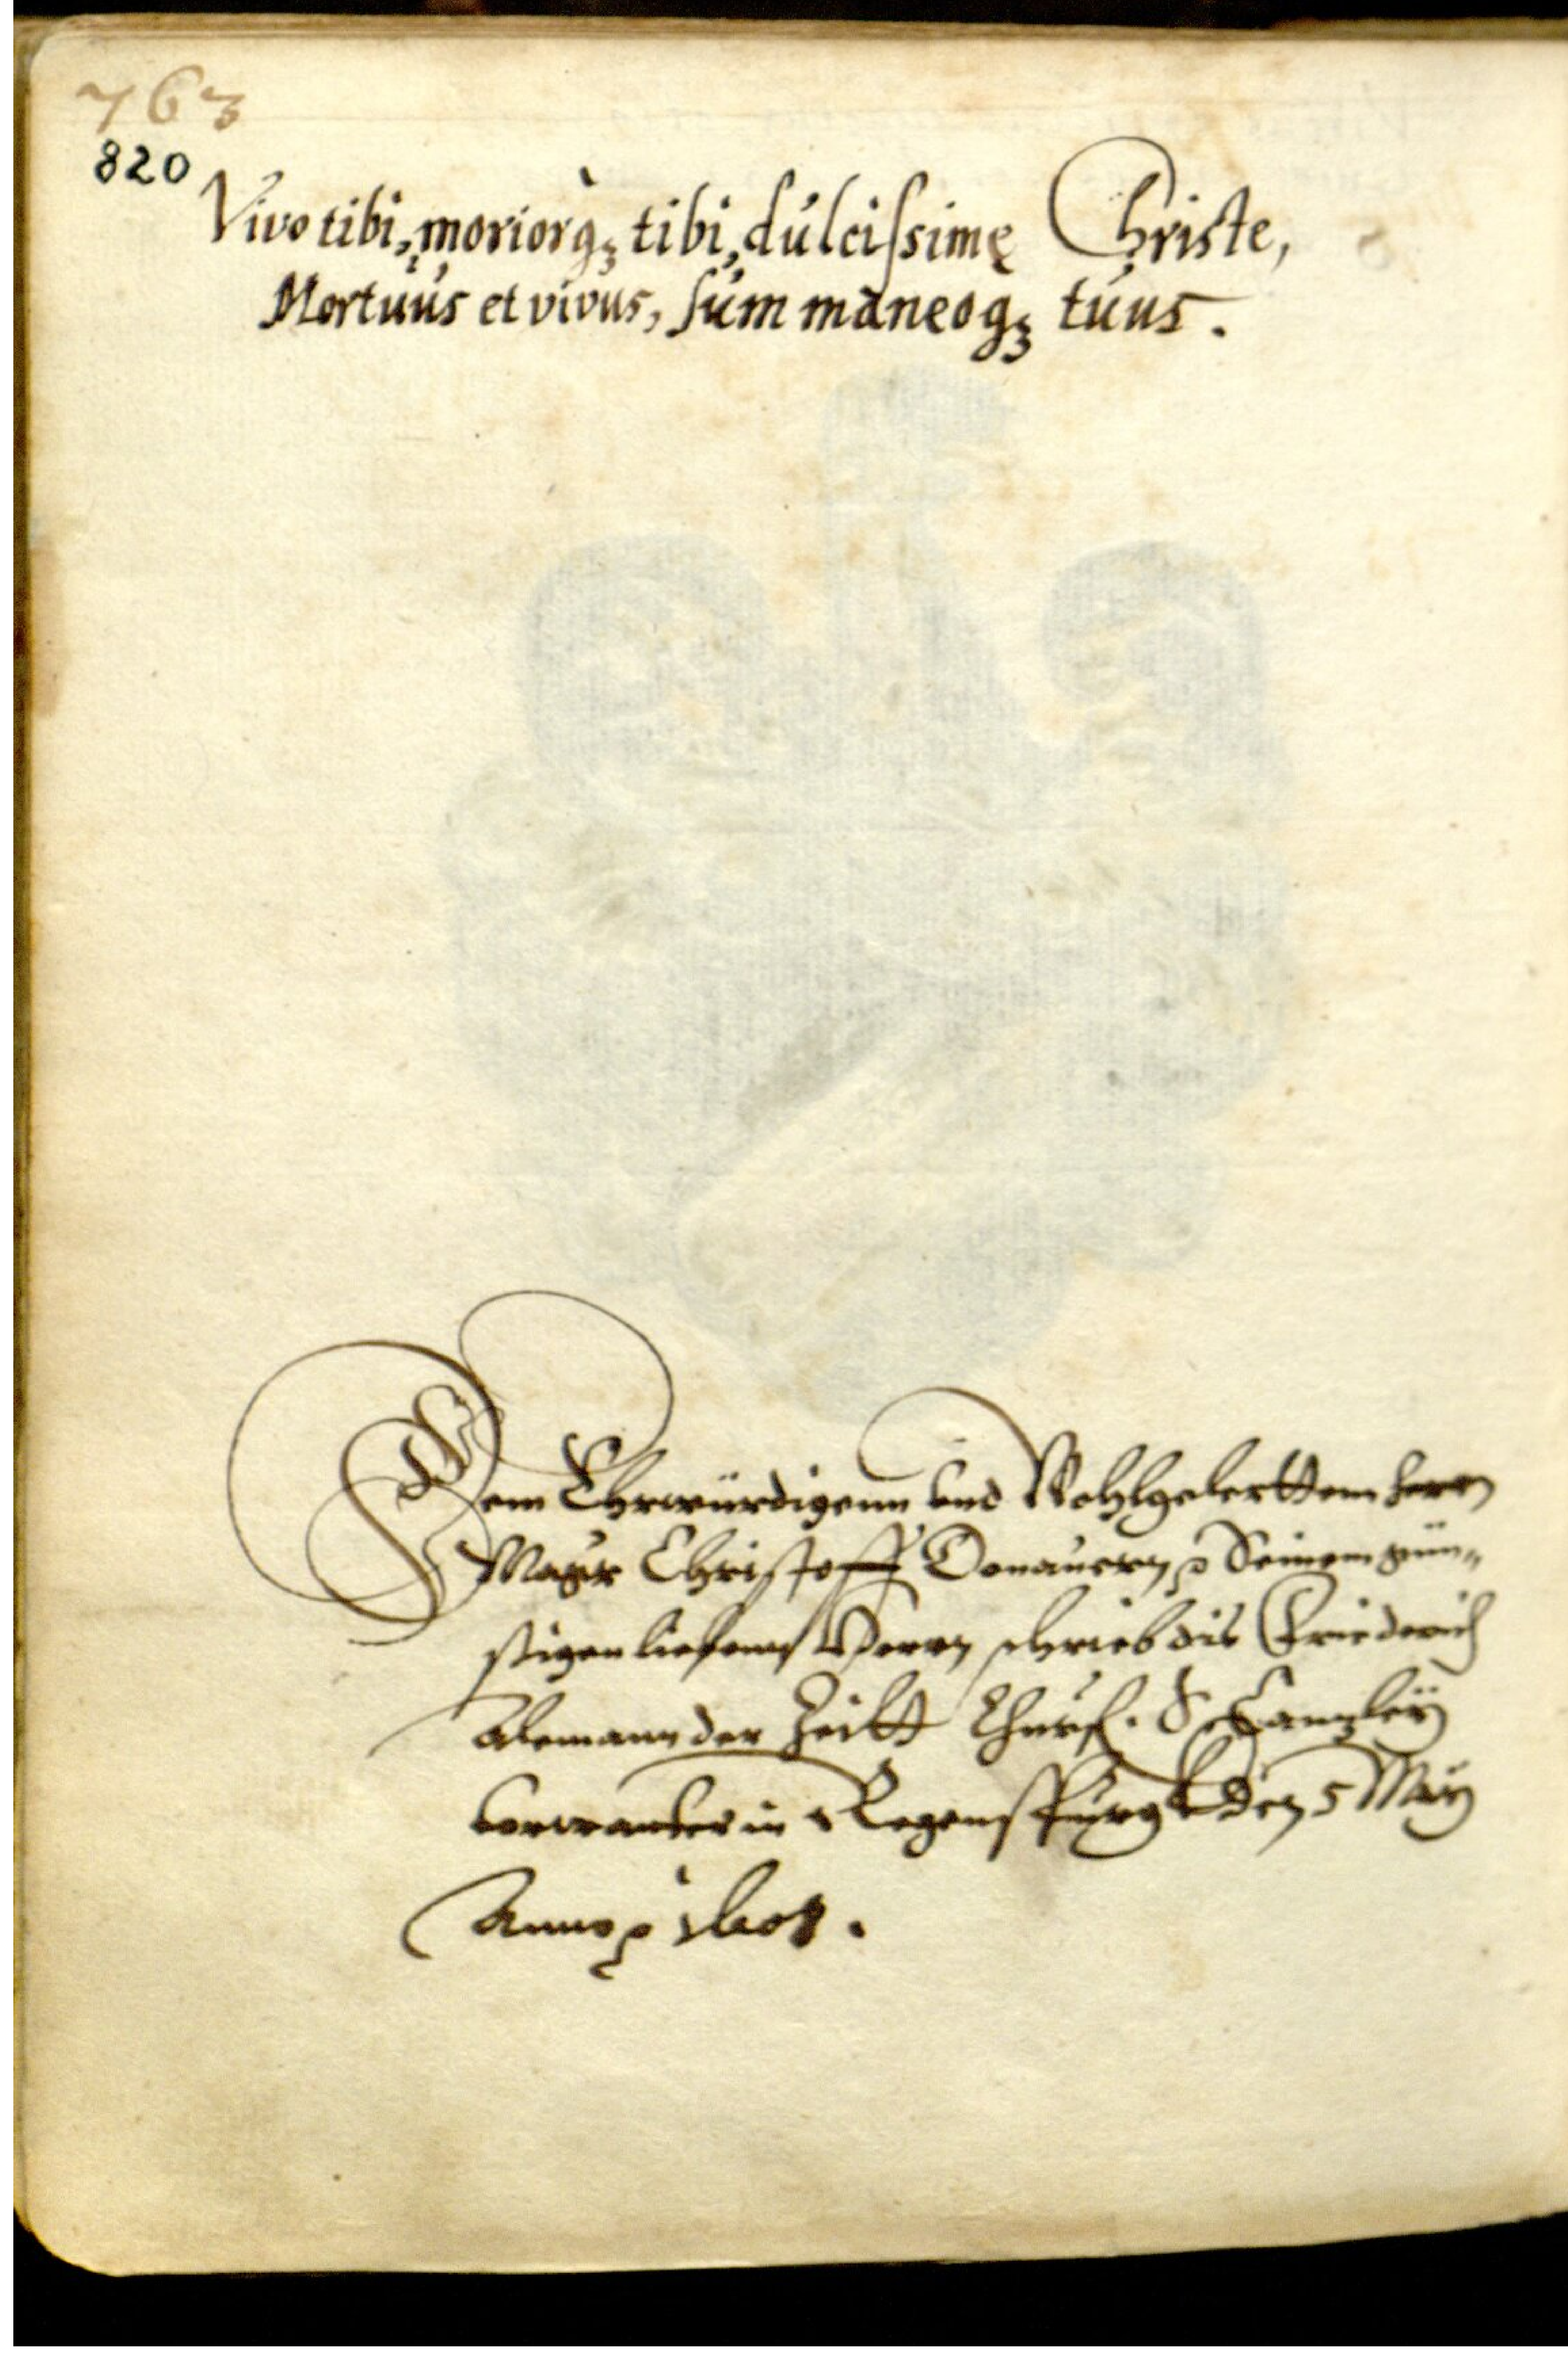 763
820
Vivo tibi, moriorq₃ tibi, dulcissime Christe,
Mortuus et vivus, sum maneoq₃ tuus.
Dem Ehrwürdigenn vnd Wohlgelerttem herrn
Magr Christoff Donauern Seinem gün„
stigen liebenn Herrn schrieb dis Friederich
Alemann der Zeitt Churf. S. Canzley
verwanter in Regenspurgk den 5 May
Anno